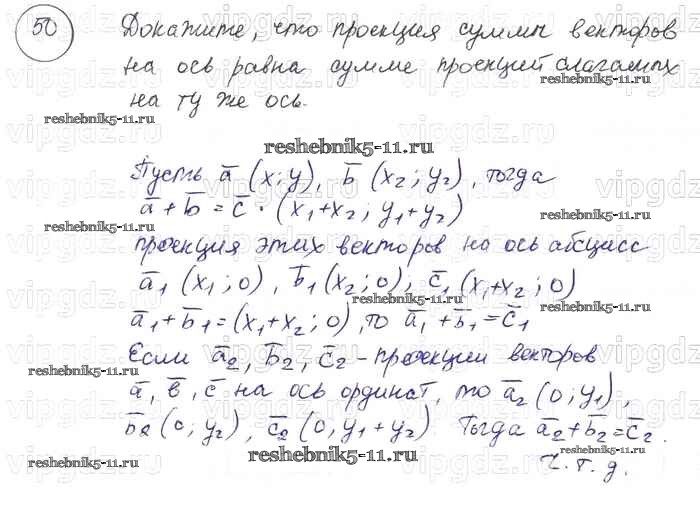 50 Докажите, что проекция суммы векторов
на ось равна сумме проекций слагаемых
reshebnik5-11.ru reshebnik5-11.ru
на ту же ось.
reshebnik5-11.ru
Пусть a̅ (x; y), b̅ (x₂; y₂), тогда
a̅ + b̅ = c̅ · (x₁+x₂; y₁+y₂)
проекция этих векторов на ось абсцисс
a̅₁ (x₁; 0), b̅₁ (x₂; 0), c̅₁ (x₁+x₂; 0)
reshebnik5-11.ru
a̅₁ + b̅₁ = (x₁+x₂; 0), то a̅₁ + b̅₁ = c̅₁
Если a̅₂, b̅₂, c̅₂ - проекции векторов
reshebnik5-11.ru
a̅, b̅, c̅ на ось ординат, то a̅₂ (0; y₁),
b̅₂ (0; y₂), c̅₂ (0, y₁+y₂) Тогда a̅₂ + b̅₂ = c̅₂.
reshebnik5-11.ru reshebnik5-11.ru reshebnik5-11.ru
ч.т.д.
vipgdz.ru